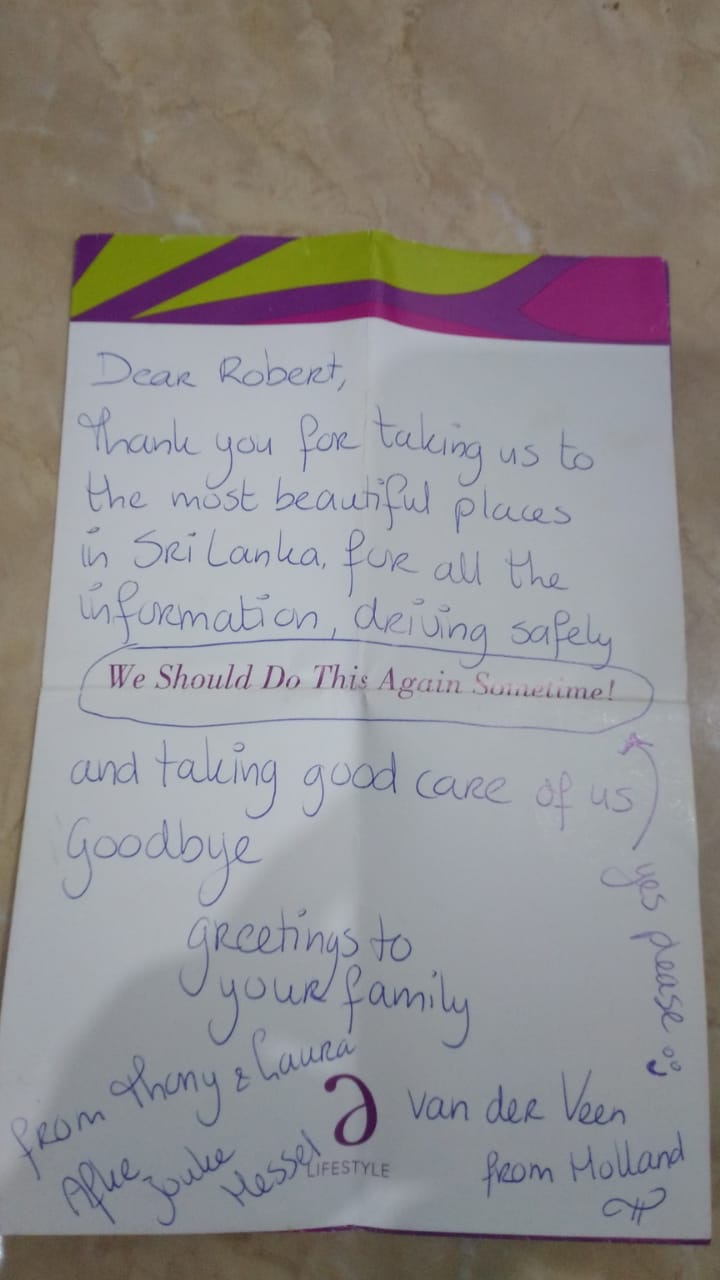 Dear Robert,
Thank you for taking us to
the most beautiful places
in Sri Lanka, for all the
information, driving safely
We Should Do This Again Sometime!
and taking good care of us
Goodbye
yes please
greetings to
your family
from Thony & Laura
van der Veen
Afke
Jouke
Hessel
from Holland
LIFESTYLE